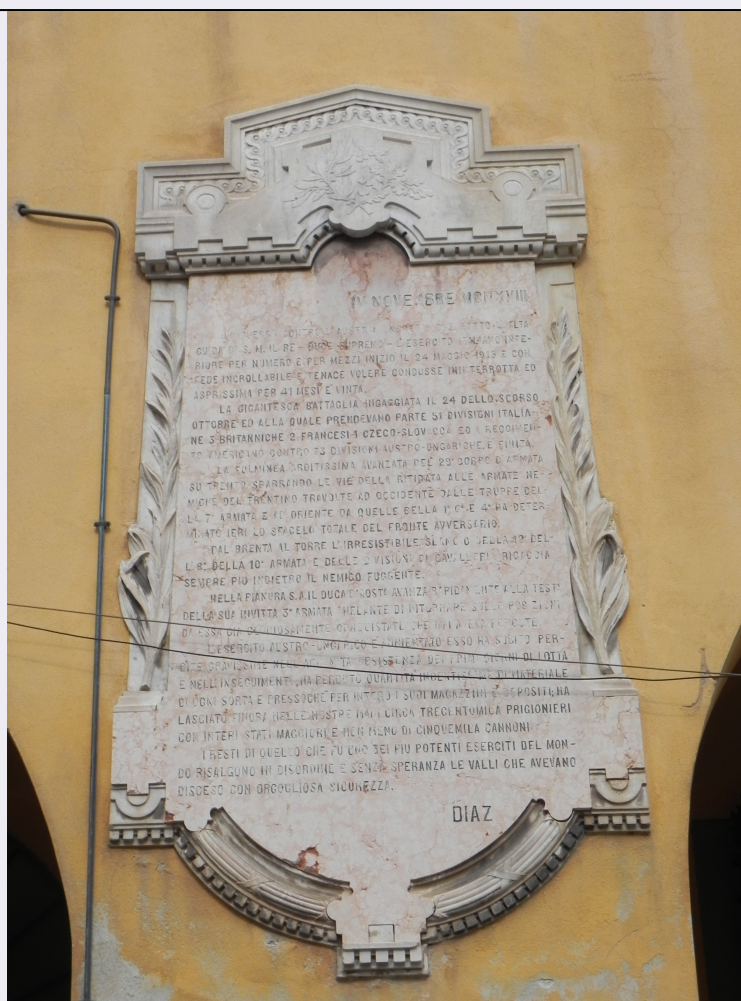 IV NOVEMBRE MCMXVIII
GUIDA DI S. M. IL RE - DUCE SUPREMO - L'ESERCITO ITALIANO INFE-
RIORE PER NUMERO E PER MEZZI INIZIÒ IL 24 MAGGIO 1915 E CON
FEDE INCROLLABILE E TENACE VOLERE CONDUSSE ININTERROTTA ED
ASPRISSIMA PER 41 MESI È VINTA.
LA GIGANTESCA BATTAGLIA INGAGGIATA IL 24 DELLO SCORSO
OTTOBRE ED ALLA QUALE PRENDEVANO PARTE 51 DIVISIONI ITALIA-
NE 3 BRITANNICHE 2 FRANCESI 1 CZECO-SLOVACCA ED 1 REGGIMEN-
TO AMERICANO CONTRO 73 DIVISIONI AUSTRO-UNGARICHE, È FINITA.
LA FULMINEA ARDITISSIMA AVANZATA DEL 29° CORPO D'ARMATA
SU TRENTO SBARRANDO LE VIE DELLA RITIRATA ALLE ARMATE NE-
MICHE DEL TRENTINO TRAVOLTE AD OCCIDENTE DALLE TRUPPE DEL-
LA 7ª ARMATA E AD ORIENTE DA QUELLE DELLA 1ª 6ª E 4ª HA DETER
MINATO IERI LO SFACELO TOTALE DEL FRONTE AVVERSARIO.
DAL BRENTA AL TORRE L'IRRESISTIBILE SLANCIO DELLA 12ª DEL-
L'8ª DELLA 10ª ARMATA E DELLE DIVISIONI DI CAVALLERIA RICACCIA
SEMPRE PIÙ INDIETRO IL NEMICO FUGGENTE.
NELLA PIANURA S.A.R. IL DUCA D'AOSTA AVANZA RAPIDAMENTE ALLA TESTA
DELLA SUA INVITTA 3ª ARMATA ANELANTE DI RITORNARE SULLE POSIZIONI
DA ESSA GIÀ GLORIOSAMENTE CONQUISTATE
L'ESERCITO AUSTRO-UNGARICO È ANNIENTATO ESSO HA SUBITO PER-
DITE GRAVISSIME NELL'ACCANITA RESISTENZA DEI PRIMI GIORNI DI LOTTA
E NELL'INSEGUIMENTO, HA PERDUTO QUANTITÀ INGENTISSIME DI MATERIALE
DI OGNI SORTA E PRESSOCHÈ PER INTERO I SUOI MAGAZZINI E DEPOSITI; HA
LASCIATO FINORA NELLE NOSTRE MANI CIRCA TRECENTOMILA PRIGIONIERI
CON INTERI STATI MAGGIORI E NON MENO DI CINQUEMILA CANNONI
I RESTI DI QUELLO CHE FU UNO DEI PIÙ POTENTI ESERCITI DEL MON-
DO RISALGONO IN DISORDINE E SENZA SPERANZA LE VALLI CHE AVEVANO
DISCESO CON ORGOGLIOSA SICUREZZA.
DIAZ